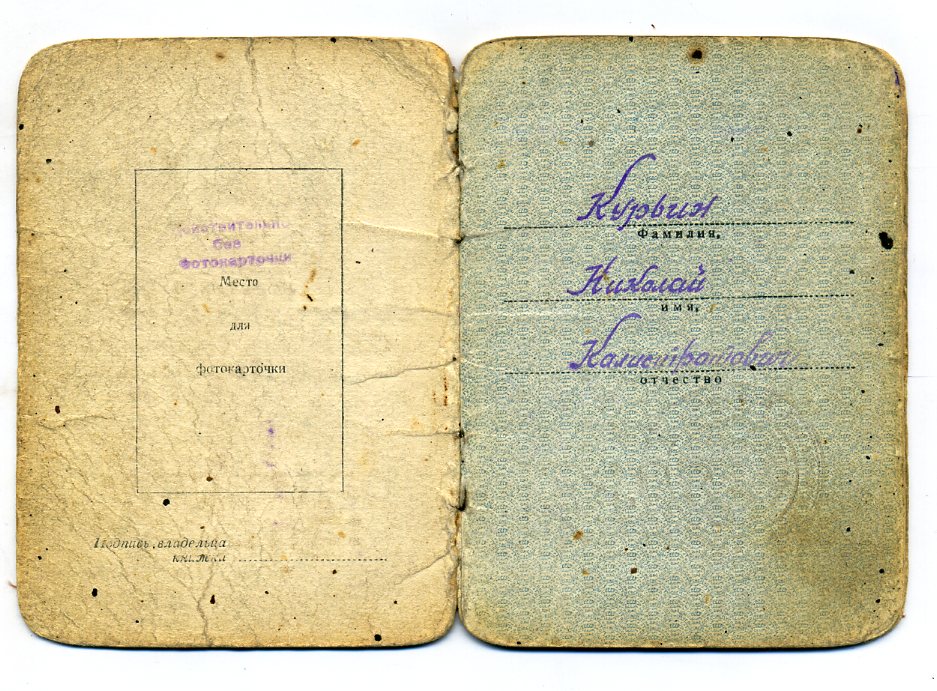 действительно
без
фотокарточки
Место
для
фотокарточки
Подпись владельца
книжки
Курвин
Фамилия,
Николай
имя,
Калистратович
отчество